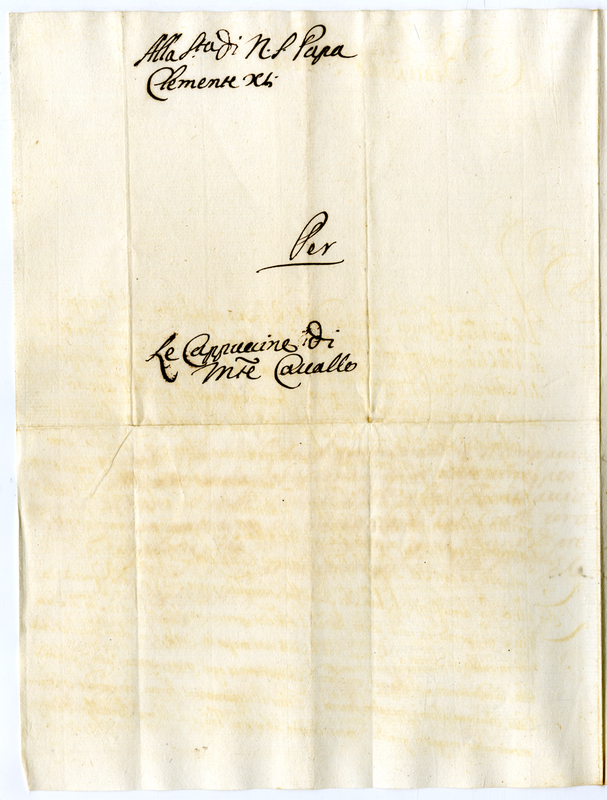 Alla S.tà di N. S. Papa
Clemente XI.
Per
Le Cappuccine di
Mte Cauallo